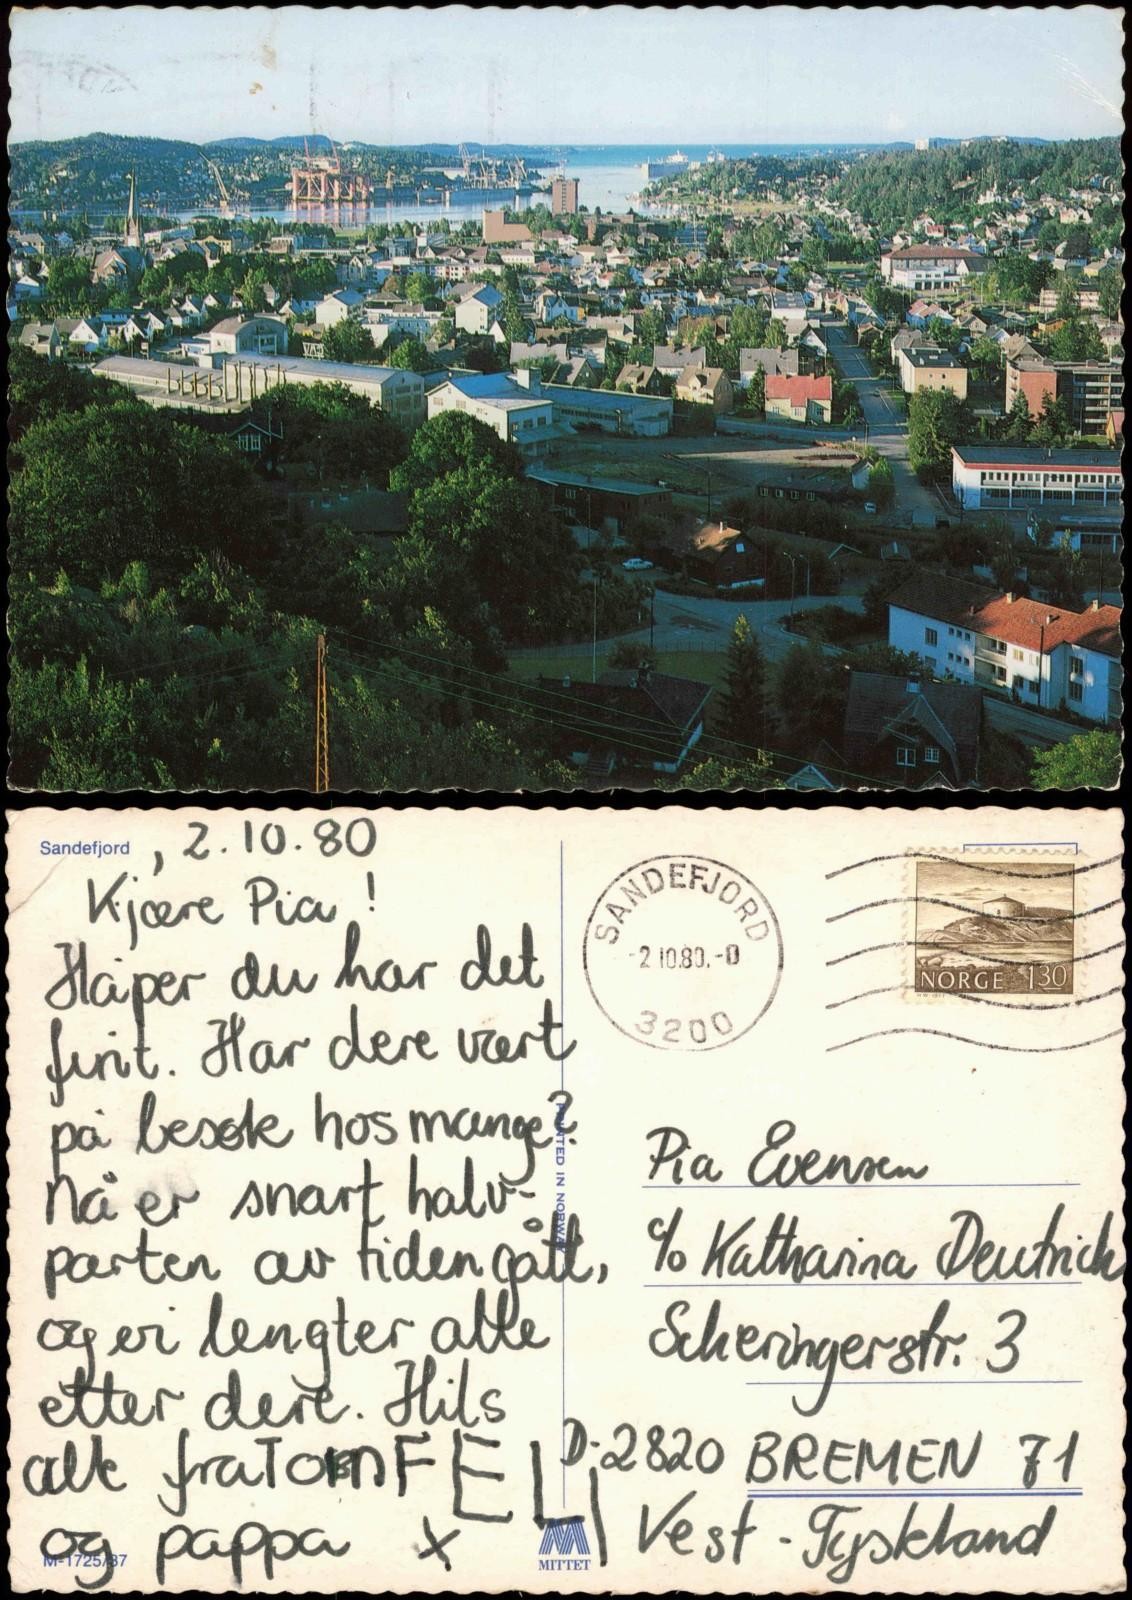 Sandefjord , 2.10.80
Kjære Pia !
Håper du har det
fint. Har dere vært
på besøk hos mange?
Nå er snart halv-
parten av tiden gått,
og vi lengter alle
etter dere. Hils
alle fra Tom FELI
og pappa x
M-1725/37
PRINTED IN NORWAY
MITTET
SANDEFJORD
-2 10.80.-0
3200
NORGE 130
Pia Evensen
c/o Katharina Deutrich
Scheringerstr. 3
D-2820 BREMEN 71
Vest-Tyskland